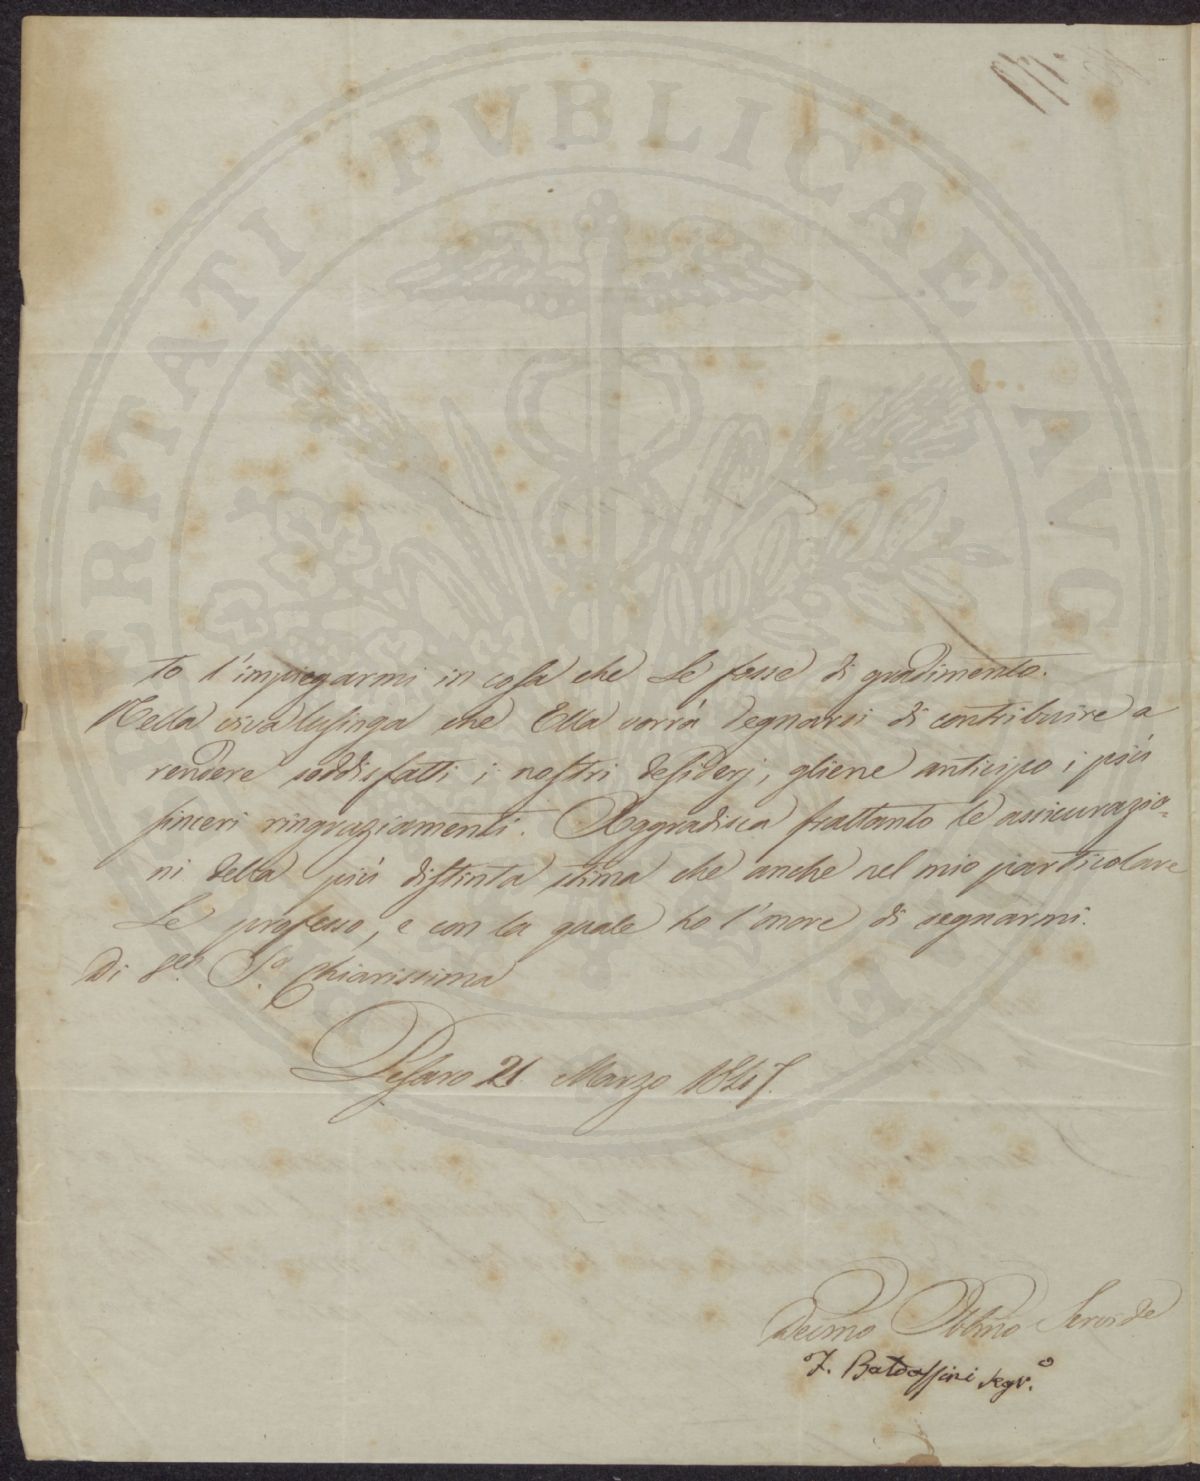 to l'impiegarmi in cosa che Le fosse di gradimento.
Nella viva lusinga che Ella vorrà degnarsi di contribuire a
rendere soddisfatti i nostri desiderj, gliene anticipo i più
sinceri ringraziamenti. Aggradisca frattanto le assicurazio-
ni della più distinta stima che anche nel mio particolare
Le professo, e con la quale ho l'onore di segnarmi.
Di Sa. Sa. Chiarissima
Pesaro 21 Marzo 1847.
Devmo Obblmo Servide
F. Baldassini Segr.o
VERITATI PVBLICAE AVG